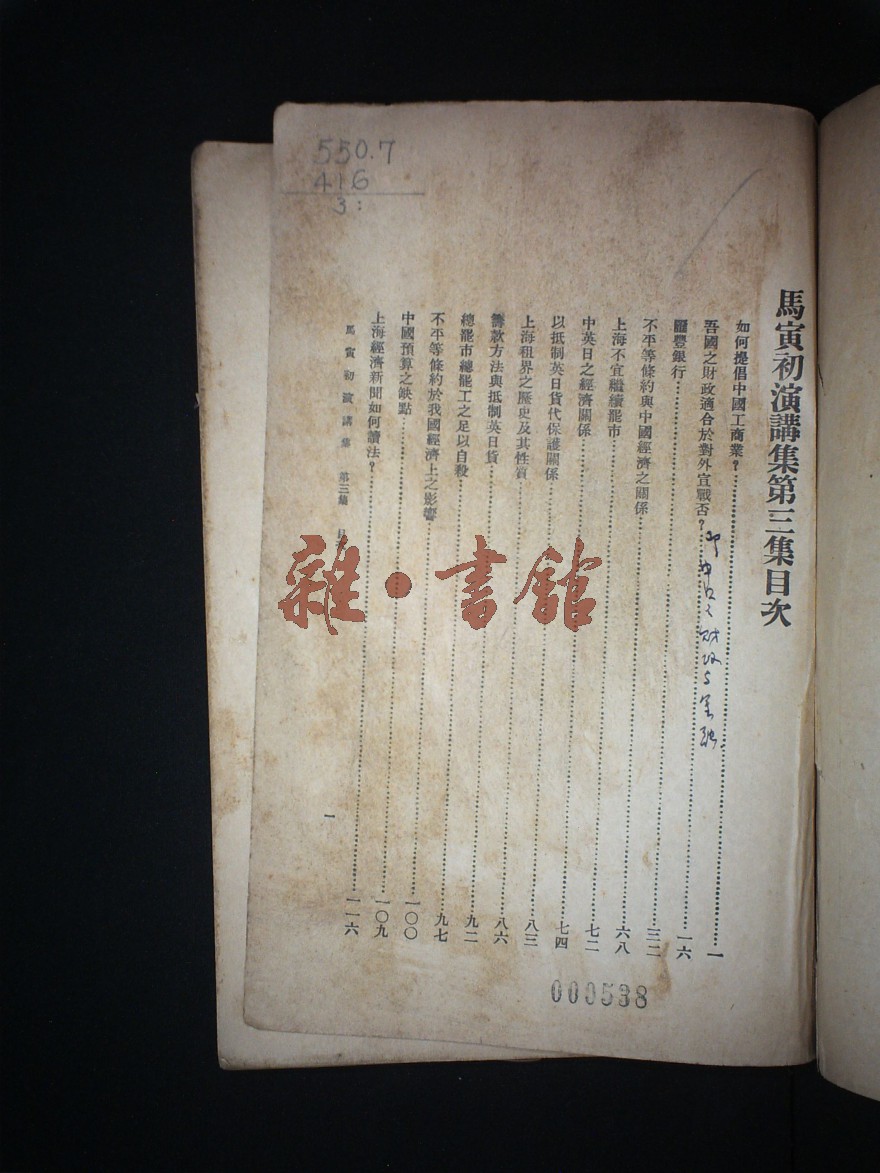 550.7
416
3:
馬寅初演講集第三集目次
如何提倡中國工商業?……一
吾國之財政適合於對外宣戰否?……一六
財政与金融
匯豐銀行……三二
不平等條約與中國經濟之關係……六八
上海不宜繼續罷市……七二
中英日之經濟關係……七四
以抵制英日貨代保護關係……八三
上海租界之歷史及其性質……八六
籌款方法與抵制英日貨……九二
總罷市總罷工之足以自殺……九七
不平等條約於我國經濟上之影響……一〇〇
中國預算之缺點……一〇九
上海經濟新聞如何讀法?……一一六
馬寅初演講集 第三集 目 一
000538
雜·書館